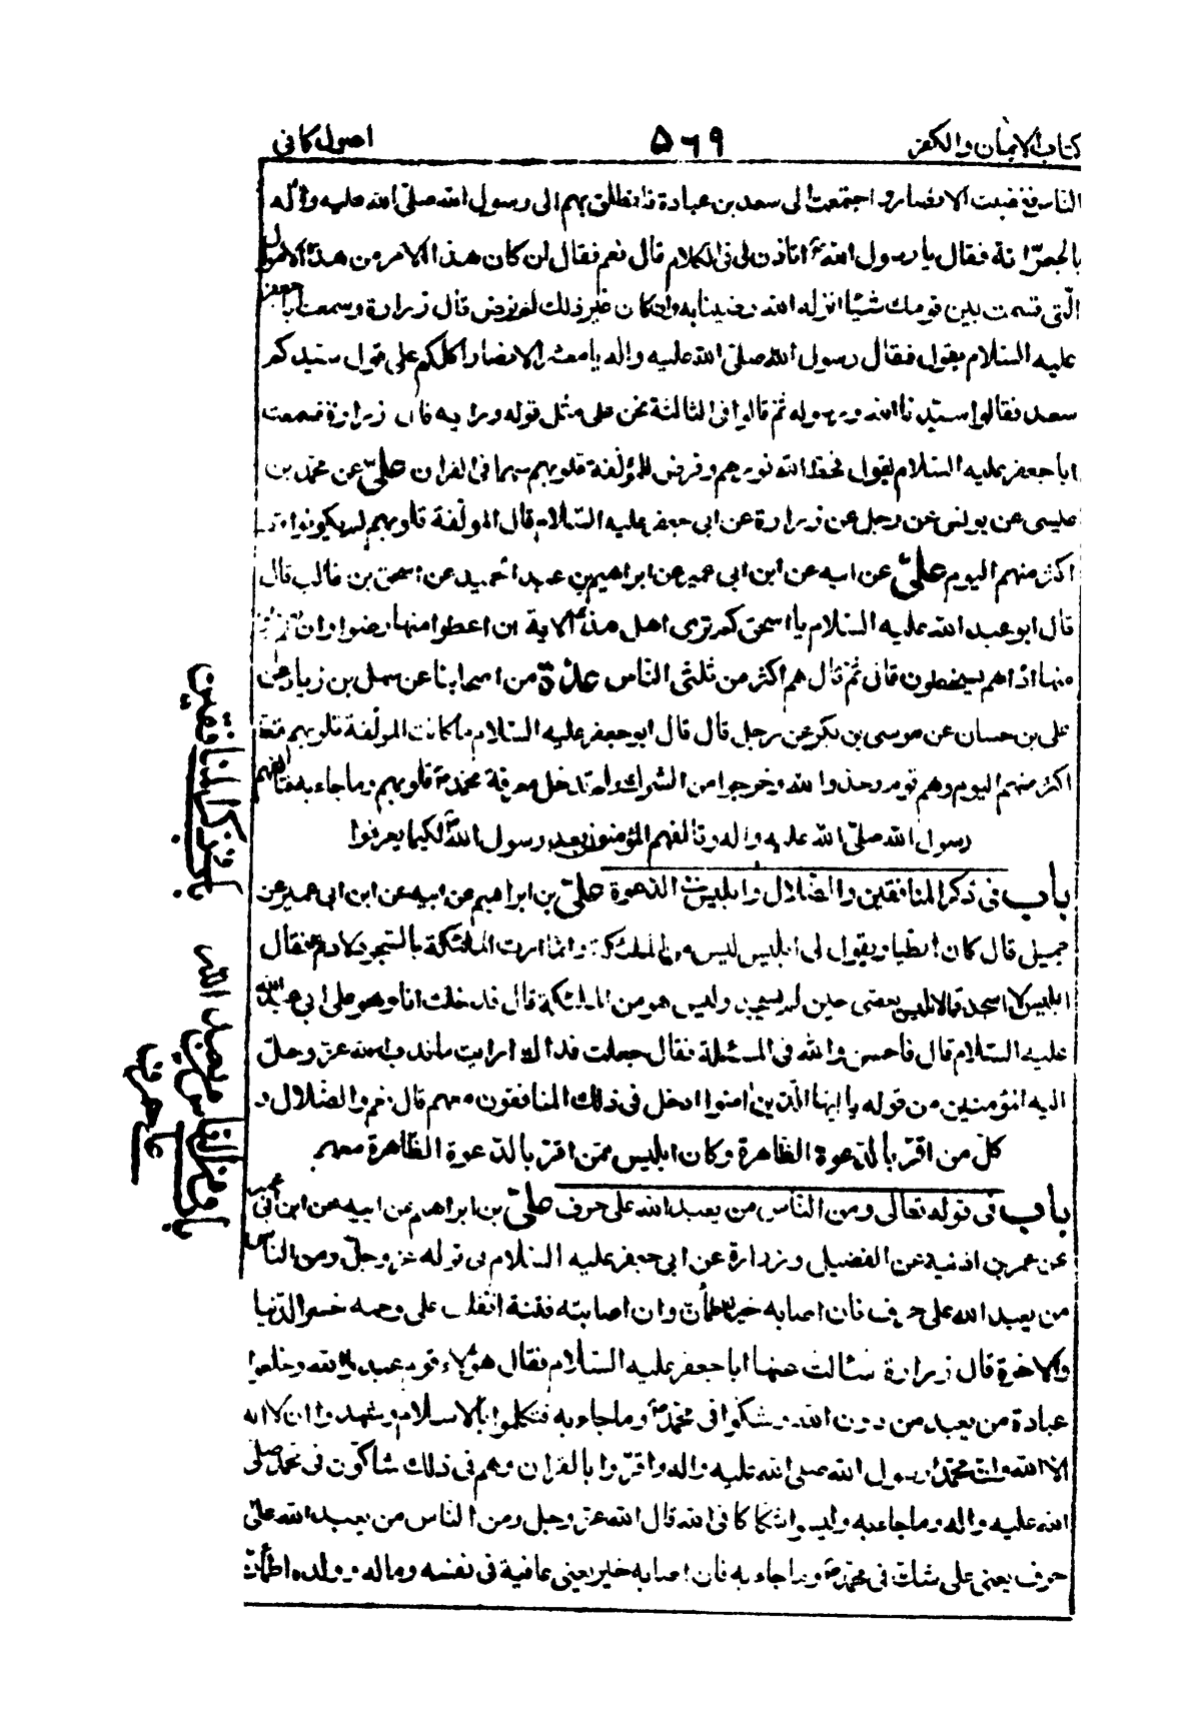 كتاب الايمان والكفر ۵۶۹ اصول كافى
الناس فغضبت الانصار واجتمعت الى سعد بن عبادة فانطلق بهم الى رسول الله صلى الله عليه واله
بالجعرّانة فقال يا رسول الله ص اتاذن لى فى الكلام قال نعم فقال ان كان هذا الامر من هذه الاموال
الّتى قسمت بين قومك شيئا انزله الله رضينا به وان كان غير ذلك لم نرض قال زرارة وسمعت ابا جعفر
عليه السّلام يقول فقال رسول الله صلىّ الله عليه واله يا معشر الانصار اكلكم على قول سيّدكم
سعد فقالوا سيّدنا الله ورسوله ثم قالوا فى الثالثة نحن على مثل قوله ورايه قال زرارة فسمعت
ابا جعفر عليه السّلام يقول فحط الله نورهم وفرض للمؤلفة قلوبهم سهما فى القران علىّ عن محمّد بن
عليسى عن يونس عن رجل عن زرارة عن ابى جعفر عليه السّلام قال المولّفة قلوبهم لم يكونوا قط
اكثر منهم اليوم علىّ عن ابيه عن ابن ابى عمير عن ابراهيم بن عبد الحميد عن اسحق بن غالب قال
قال ابو عبد الله عليه السّلام يا اسحق كم ترى اهل هذه الاية ان اعطوا منها رضوا وان لم
منها اذا هم يسخطون قال ثم قال هم اكثر من ثلثى النّاس عدّة من اصحابنا عن سهل بن زياد عن
على بن حسان عن موسى بن بكر عن رجل قال قال ابو جعفر عليه السّلام ما كانت المولّفة قلوبهم قط
اكثر منهم اليوم وهم قوم وحدوا الله وخرجوا من الشرك ولم تدخل معرفة محمّد ص قلوبهم وما جاء به فتالفهم
رسول الله صلىّ الله عليه واله وتالفهم المؤمنون بعد رسول الله ص لكيما يعرفوا
باب فى ذكر المنافقين والضّلال وابليس فى الدّعوة علىّ بن ابراهيم عن ابيه عن ابن ابى عمير عن
جميل قال كان الطيار يقول لى ابليس ليس من الملئكة وانما امرت الملئكة بالسّجود لادم ع فقال
ابليس لا اسجد فما لابليس يعصى حين لم يسجد وليس هو من الملئكة قال فدخلت انا وهو على ابى عبد الله
عليه السّلام قال فاحسن والله فى المسئلة فقال جعلت فداك ارايت ما ندب الله عزّ وجلّ
اليه المؤمنين من قوله يا ايها الّذين امنوا ادخل فى ذلك المنافقون معهم قال نعم والضّلال و
كلّ من اقرّ بالدّعوة الظاهرة وكان ابليس ممّن اقرّ بالدّعوة الظّاهرة معهم
باب فى قوله تعالى ومن النّاس من يعبد الله على حرف علىّ بن ابراهيم عن ابيه عن ابن ابى عمير
عن عمر بن اذينة عن الفضيل وزرارة عن ابى جعفر عليه السّلام فى قوله عزّ وجلّ ومن الناس
من يعبد الله على حرف فان اصابه خير اطمأن به وان اصابته فتنة انقلب على وجهه خسر الدّنيا
والاخرة قال زرارة سئالت عنها ابا جعفر عليه السّلام فقال هؤلاء قوم عبدوا الله وخلعوا
عبادة من يعبد من دون الله وشكّوا فى محمّد ص وما جاء به فتكلموا بالاسلام وشهدوا ان لا اله
الا الله وانّ محمّدا رسول الله صلى الله عليه واله واقرّوا بالقران وهم فى ذلك شاكّون فى محمّد صلى
الله عليه واله وما جاء به وليسوا شكّاكا فى الله قال الله عزّ وجل ومن النّاس من يعبد الله على
حرف يعنى على شك فى محمّد ص وما جاء به فان اصابه خير يعنى عافية فى نفسه وماله وولده اطمأنّ
باب فى ذكر المنافقين
باب ومن النّاس من يعبد الله
على حرف